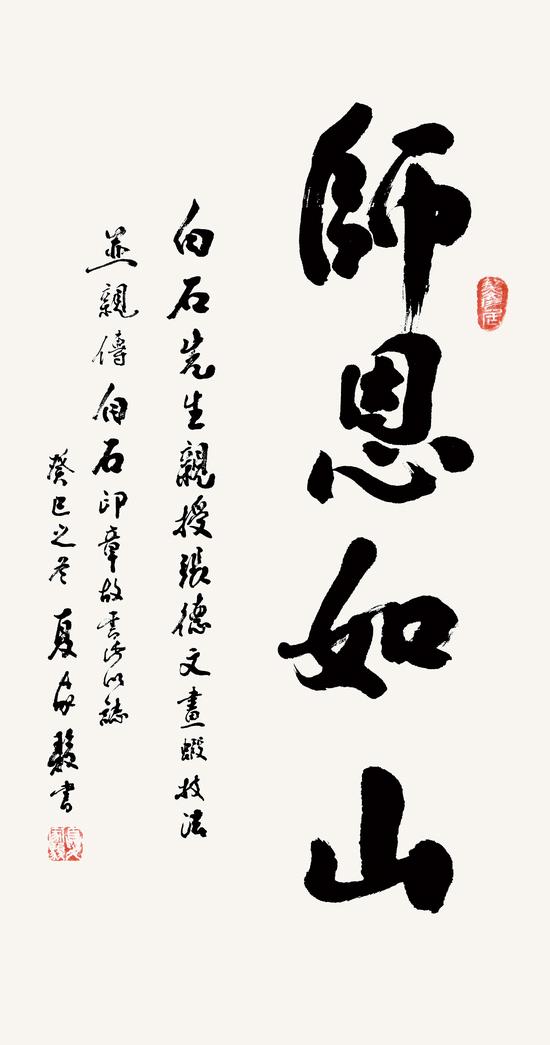 師恩如山
白石先生親授張德文畫蝦技法
並親傳白石印章故此以誌
癸巳之冬 夏家駿書